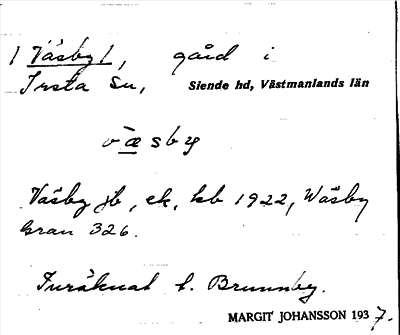 / Väsby /, gård i
Irsta sn, Siende hd, Västmanlands län
væsby
Väsby jb, ek, kb 1922, Wäsby
Gran 326.
Inräknat t. Brunnby.
MARGIT JOHANSSON 1937.